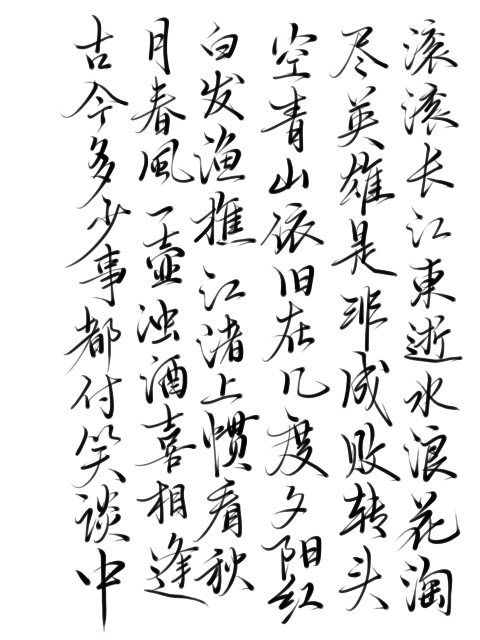 滚滚长江東逝水浪花淘
尽英雄是非成败转头
空青山依旧在几度夕阳红
白发渔樵江渚上惯看秋
月春風一壶浊酒喜相逢
古今多少事都付笑谈中